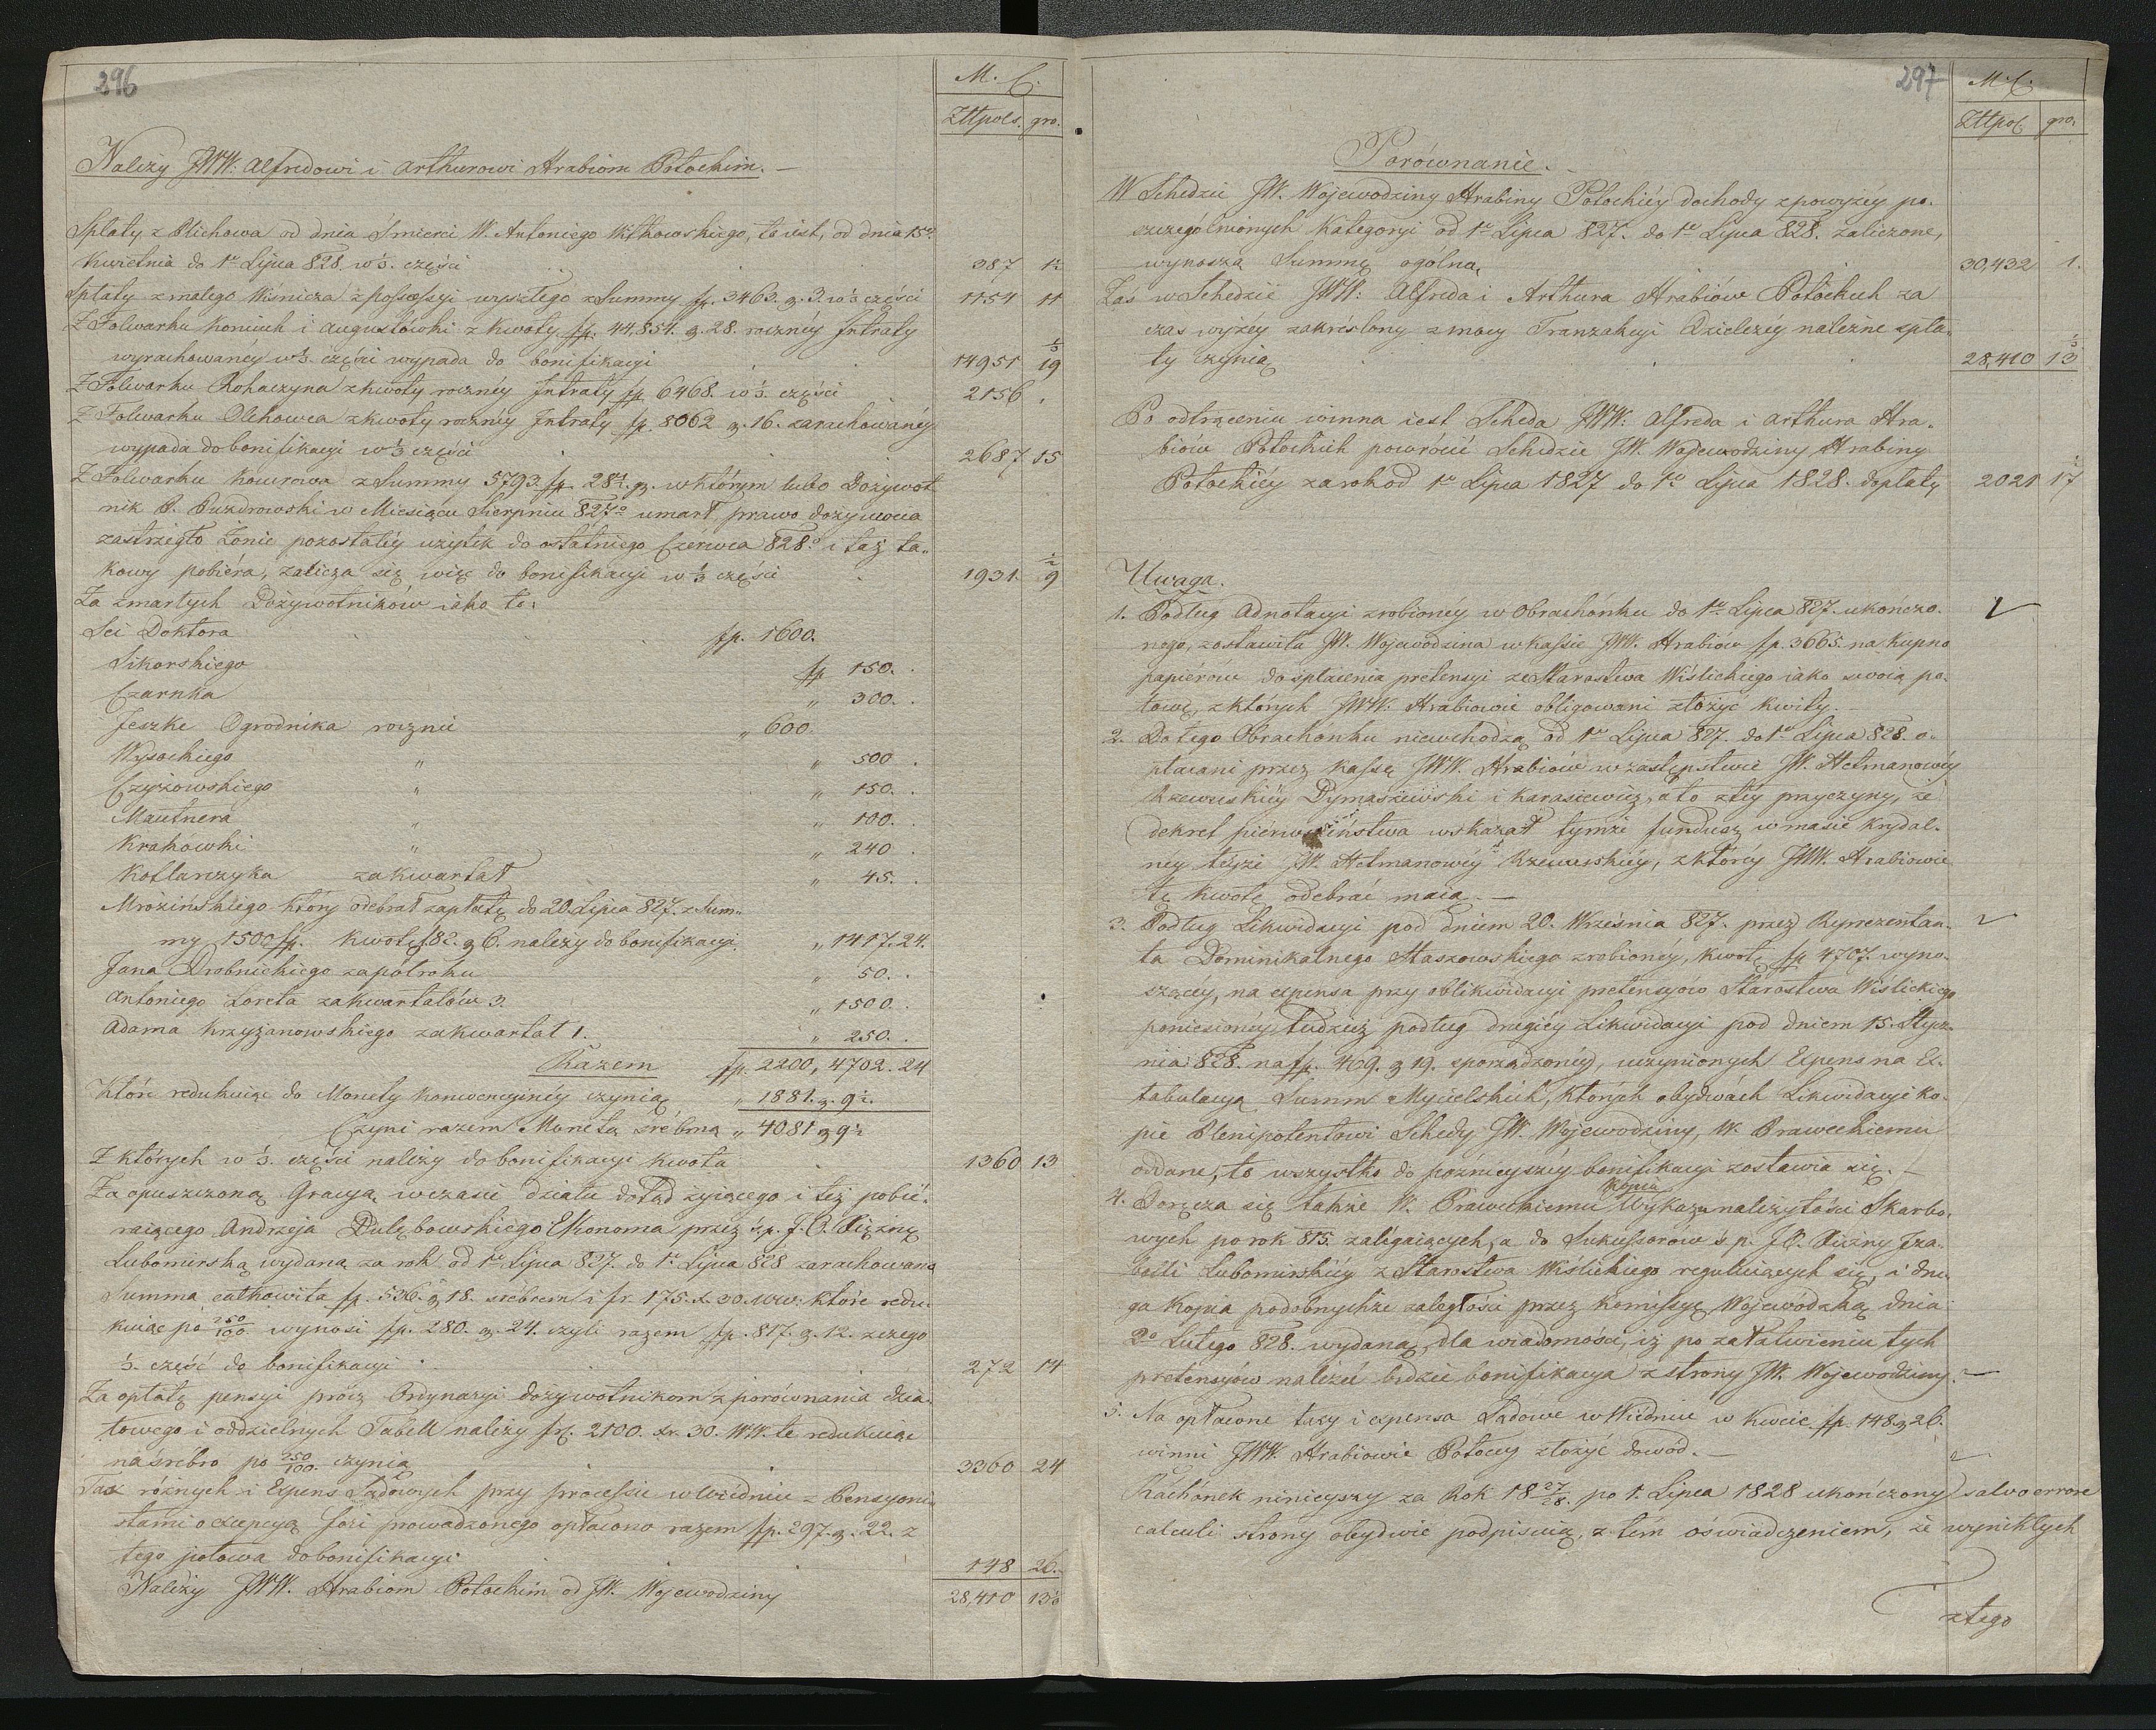 296
M. C.
Złłpols. gro.
Należy JWW: Alfredowi i Arthurowi Hrabiom Potockim. —
Spłaty z Olichowa od dnia Śmierci W. Antoniego Witkowskiego, to iest, od dnia 15go
Kwietnia do 1go Lipca 828. w ⅓. części 387 1½
Spłaty z małego Wiśnicza z possessyi wyszłego z Summy fp. 3463. g. 3. w ⅓ części 1154 11
Z Folwarku Koniuch i Augustówki z Kwoty fp. 44,854. g 28. roczney Intraty
wyrachowanéy w ⅓. części wypada do bonifikacyi 14951 19⅓
Z Folwarku Rohaczyna z kwoty rocznéy Intraty fp 6468. w ⅓. części 2156 .
Z Folwarku Olchowca z kwoty rocznéy Intraty fp. 8062 g. 16. zarachowanéy
wypada do bonifikacyi w ⅓ części 2687 15
Z Folwarku Kówrowa z Summy 5793. fp. 28½. g. w którym lubo Dożywot
nik P. Puzdrowski w Miesiącu Sierpniu 827o umarł, prawo dożywocia
zastrzegło Żonie pozostałéy użytek do ostatniego Czerwca 828o. i taż ta-
kowy pobiéra, zalicza się więc do bonifikacyi w ⅓ części 1931. 9½
Za zmarłych Dożywotników iako to:
Sci Doktora fp. 1600.
Sikorskiego fp 150. .
Czarnka „ 300. .
Jeszke Ogrodnika rocznie „ 600.
Wysockiego „ „ 500 .
Czyżowskiego „ „ 150. .
Mautnera „ „ 100. .
Krakówki „ „ 240 .
Kotlarczyka za kwartał „ 45. .
Mrozińskiego który odebrał zapłatę do 20 Lipca 827. z Sum-
my 1500 fp. Kwotę 82. g 6. należy do bonifikacyi „ 1417. 24.
Jana Drobnickiego za półroku „ 50. .
Antoniego Loreta za kwartałów 3. „ 1500. .
Adama Krzyżanowskiego za kwartał 1. „ 250. .
Razem fp. 2200, 4702. 24
Które redukuiąc do Monety Konwencyinéy czynią „ 1881. g. 9½.
Czyni razem Monetą srébrną „ 4081 g 9½
Z których w ⅓. części należy do bonifikacyi kwota 1360 13
Za opuszczoną Gracyą w czasie działu dotąd żyiącego i też pobié-
raiącego Andrzeja Dulębowskiego Ekonoma przez ś. p. J. O. Xiężnę
Lubomirską wydaną za rok od 1go Lipca 827. do 1go Lipca 828 zarachowana
Summa całkowita fp. 536. g 18. srébrem i fr. 175. x. 30. WW. które redu-
kuiąc po 250/100 wynosi fp. 280. g. 24. czyli razem fp. 817. g. 12. z czego
⅓. część do bonifikacyi 272 14
Za opłatę pensyi prócz Ordynaryi dożywotnikom z porównania dzia-
łowego i oddzielnych Tabell należy fr. 2100. xr. 30. WW. te redukuiąc
na srébro po 250/100. czynią 3360 24
Tax różnych i Expens Sądowych przy processie w Wiédniu z Pensyoni-
stami o excepcyą fori prowadzonego opłacono razem fp. 297. g. 22. z
tego połowa do bonifikacyi 148 26.
Należy JWW. Hrabiom Potockim od JW. Wojewodziny 28,410 13⅓
297
M. C.
Złłpol gro.
Porównanie. —
W Schedzie JW. Wojewodziny Hrabiny Potockiéy dochody z powyżéy po-
szczególnionych Kategoryi od 1go Lipca 827. do 1go Lipca 828. zaliczone,
wynoszą Summę ogólną 30,432 1.
Zaś w Schedzie JWW: Alfreda i Arthura Hrabiów Potockich za
czas wyżéy zakréslony z mocy Tranzakcyi Działczéy należne spła-
ty czynią 28,410 13⅓
Po odtrąceniu winna iest Scheda JWW: Alfreda i Arthura Hra-
biów Potockich powrócić Schedzie JW. Wojewodziny Hrabiny
Potockiéy za rok od 1go Lipca 1827 do 1go Lipca 1828. dopłaty 2021 17½
Uwaga.
1. Podług Adnotacyi zrobionéy w Obrachónku do 1go Lipca 827. ukończo-
nego, zostawiła JW. Wojewodzina w kassie JWW. Hrabiów fp. 3665. na kupno
papiérów do spłacenia pretensyi ze Starostwa Wiślickiego iako swoią po-
łowę, z których JWW. Hrabiowie obligowani złożyć kwity. —
2. Do tego Obrachónku niewchodzą od 1go Lipca 827. do 1go Lipca 828. o-
płacani przez kassę JWW. Hrabiów w zastępstwie JW. Hetmanowéy
Rzewuskiéy Dymaszewski i Karasiewicz, a to z téy przyczyny, że
dekret piérwszeństwa wskazał tymże fundusz w masie krydal-
néy téyże JW. Hetmanowéy Rzewuskiéy, z któréy JWW. Hrabiowie
tę kwotę odebrać maią. —
3. Podług Likwidacyi pod dniem 20. Września 827. przez Reprezentan-
ta Dominikalnego Staszowskiego zrobionéy, kwotę fp 4707. wyno-
szącéy, na expensa przy oblikwidacyi pretensyów Starostwa Wiślickiego
poniesionéy, tudzież podług drugiéy Likwidacyi pod dniem 15. Stycz-
nia 828. na fp. 469. g 19. sporządzonéy, uczynionych Expens na Ex-
tabulacyą Summ Mycielskich, których obydwóch Likwidacyi ko-
pie Plenipotentowi Schedy JW. Wojewodziny, W. Praweckiemu
oddane, to wszystko do poźnieyszéy bonifikacyi zostawia się. —
4. Doręcza się także W. Praweckiemu Kopia Wykazu należytości Skarbo-
wych po rok 815. zalégaiących, a do Sukcessorów ś p. J. O. Xiężny Iza-
belli Lubomirskiéy z Starostwa Wiślickiego reguluiących się, i dru-
ga kopia podobnychże zaległości przez Komissyę Wojewódzką dnia
2o Lutego 828. wydana, dla wiadomości, iż po załatwieniu tych
pretensyów należeć będzie bonifikacya z strony JW. Wojewodziny. —
5. Na opłacone taxy i expensa Sądowe w Wiédniu w kwocie fp. 148. g 26.
winni JWW. Hrabiowie Potoccy złożyć dowód. —
Rachónek ninieyszy za Rok 18 27/28. po 1. Lipca 1828 ukończony salvo errore
calculi strony obydwie podpisuią, z tém oświadczeniem, że wynikłych
z tego